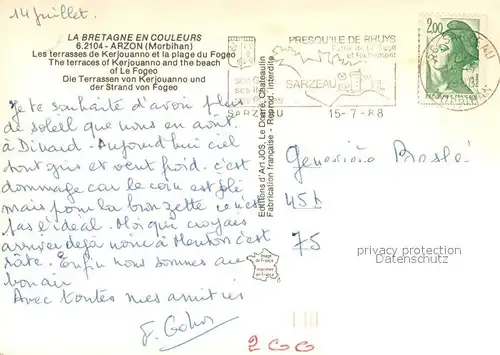 14 juillet.
LA BRETAGNE EN COULEURS
6.2104 - ARZON (Morbihan)
Les terrasses de Kerjouanno et la plage du Fogeo
The terraces of Kerjouanno and the beach
of Le Fogeo
Die Terrassen von Kerjouanno und
der Strand von Fogeo
Je te souhaite d'avoir plus
de soleil que nous en avons
à Dinard. Aujourd'hui ciel
tout gris et vent froid. c'est
dommage car le coin est joli
mais pour la bronzette ce n'est
pas l'idéal. Moi qui croyais
arriver déjà noire à Menton c'est
râté. Enfin nous sommes au
bon air
Avec toutes mes amitiés
Editions d'Art JOS, Le Doaré, Chateaulin
Fabrication française - Reprod. interdite
PRESQU'ILE DE RHUYS
SARZEAU
SARZEAU
15-7-88
2,00
Geneviève
45
75
privacy protection
Datenschutz
200